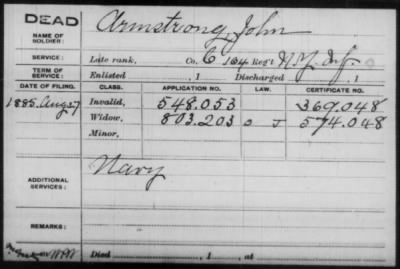 DEAD
NAME OF SOLDIER: Armstrong, John
SERVICE: Late rank, Co. C 164 Reg't N.Y. Inf.
TERM OF SERVICE: Enlisted , 1 Discharged , 1
DATE OF FILING. CLASS. APPLICATION NO. LAW. CERTIFICATE NO.
1885. Aug 27 Invalid, 548.053 369.048
Widow, 803.203 574.048
Minor,
ADDITIONAL SERVICES: Navy
REMARKS:
Died , 1 , at